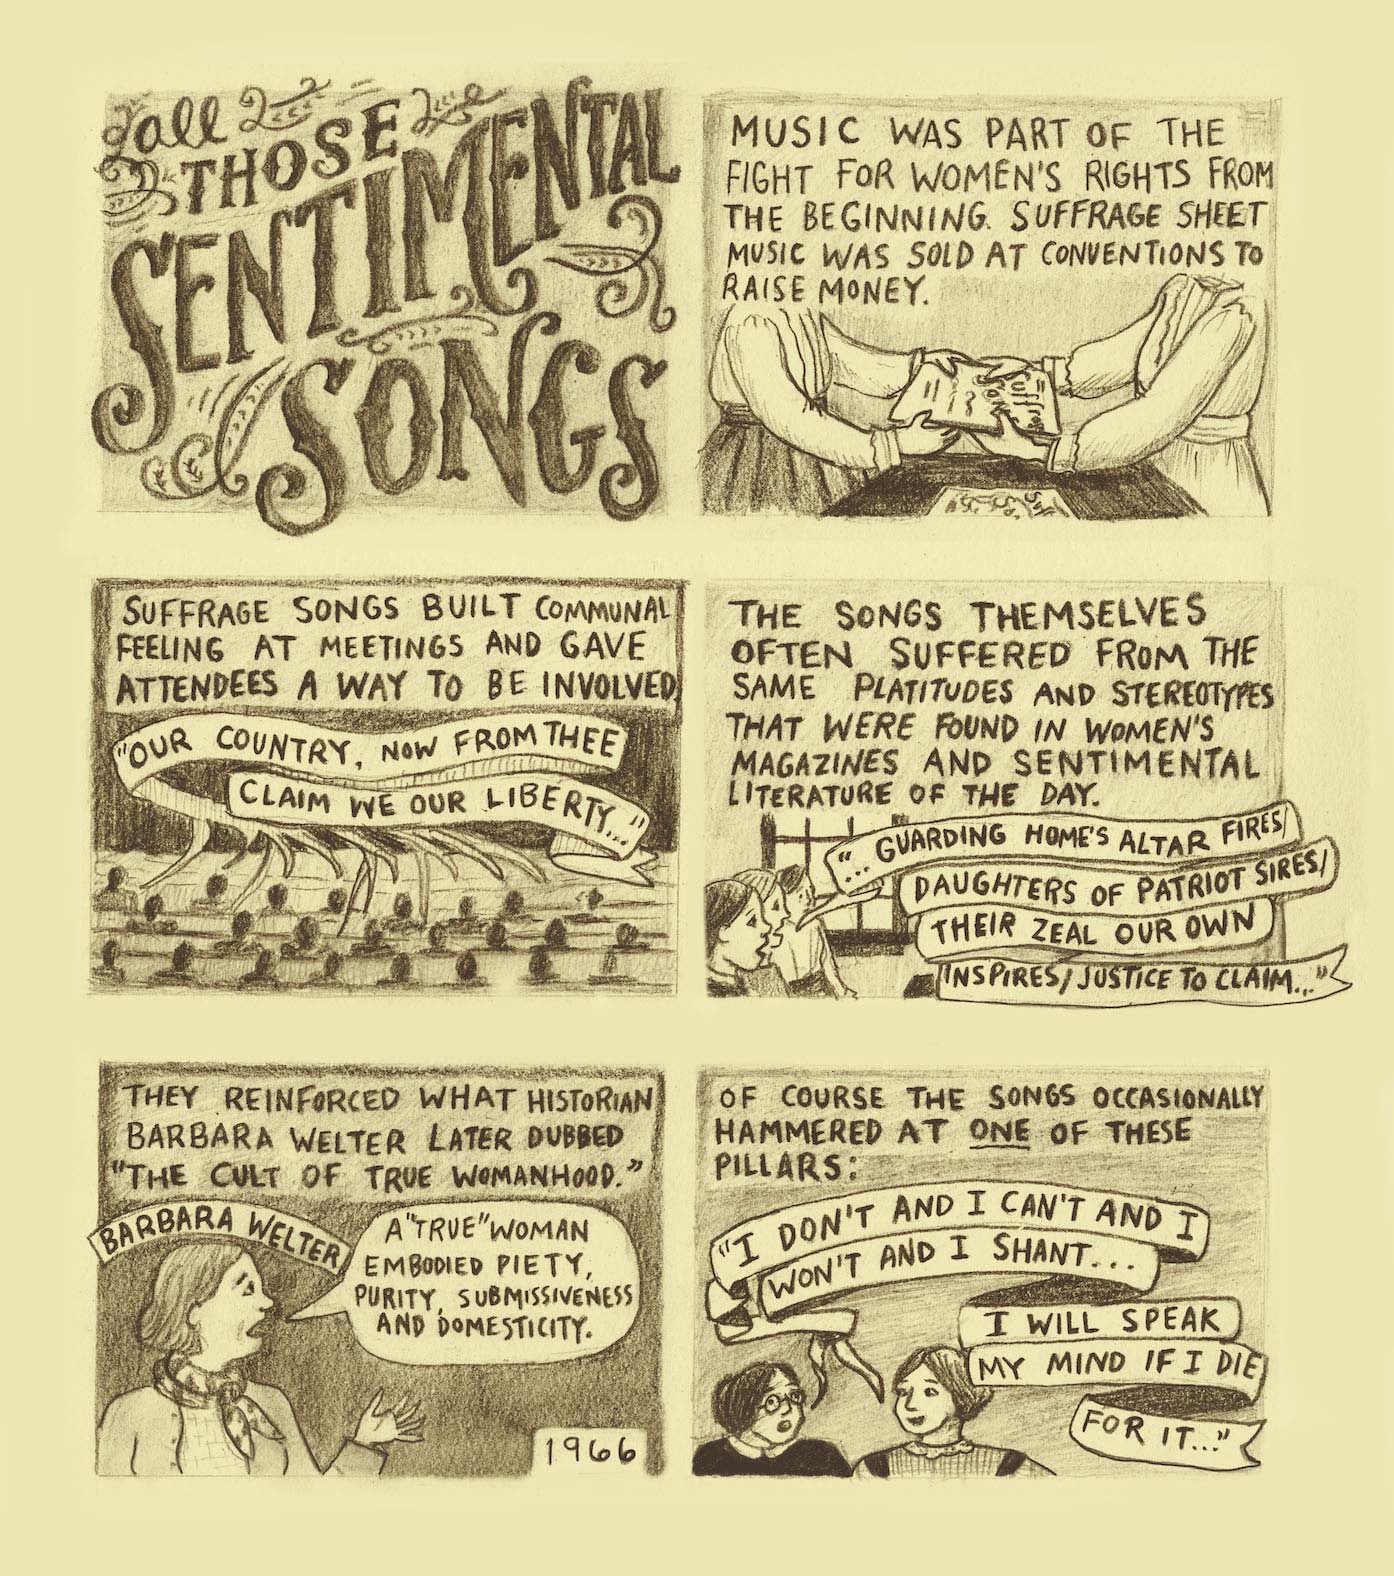 all
THOSE
SENTIMENTAL
SONGS
MUSIC WAS PART OF THE
FIGHT FOR WOMEN'S RIGHTS FROM
THE BEGINNING. SUFFRAGE SHEET
MUSIC WAS SOLD AT CONVENTIONS TO
RAISE MONEY.
SUFFRAGE SONGS BUILT COMMUNAL
FEELING AT MEETINGS AND GAVE
ATTENDEES A WAY TO BE INVOLVED.
"OUR COUNTRY, NOW FROM THEE
CLAIM WE OUR LIBERTY..."
THE SONGS THEMSELVES
OFTEN SUFFERED FROM THE
SAME PLATITUDES AND STEREOTYPES
THAT WERE FOUND IN WOMEN'S
MAGAZINES AND SENTIMENTAL
LITERATURE OF THE DAY.
"...GUARDING HOME'S ALTAR FIRES/
DAUGHTERS OF PATRIOT SIRES/
THEIR ZEAL OUR OWN
INSPIRES/JUSTICE TO CLAIM..."
THEY REINFORCED WHAT HISTORIAN
BARBARA WELTER LATER DUBBED
"THE CULT OF TRUE WOMANHOOD."
BARBARA WELTER
A "TRUE" WOMAN
EMBODIED PIETY,
PURITY, SUBMISSIVENESS
AND DOMESTICITY.
1966
OF COURSE THE SONGS OCCASIONALLY
HAMMERED AT ONE OF THESE
PILLARS:
"I DON'T AND I CAN'T AND I
WON'T AND I SHANT...
I WILL SPEAK
MY MIND IF I DIE
FOR IT..."